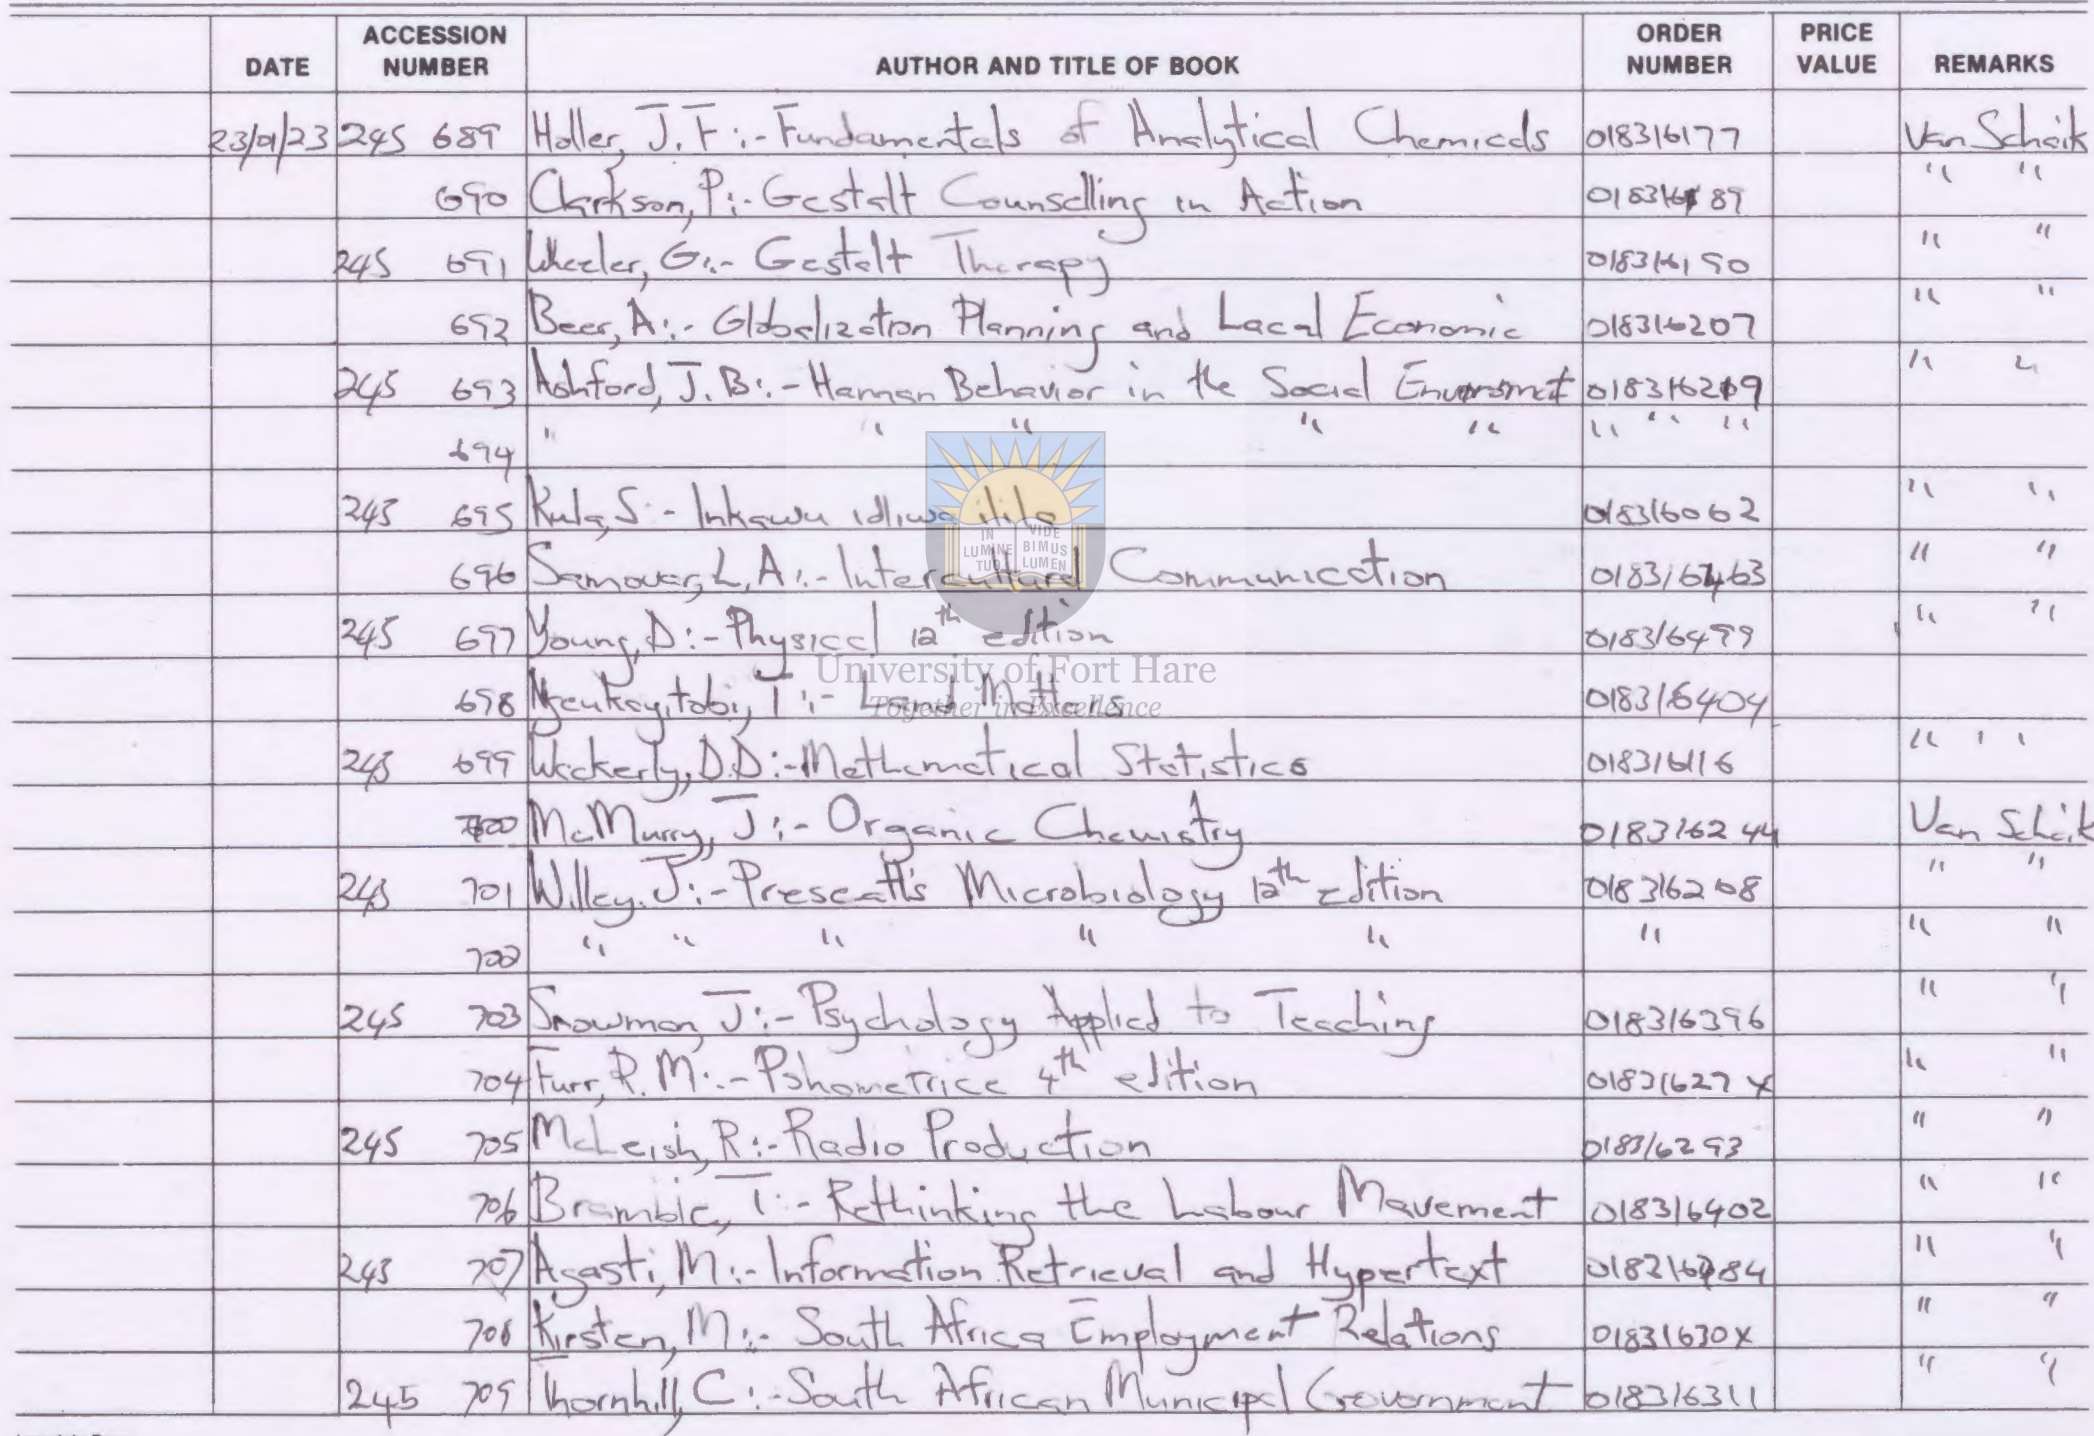 DATE ACCESSION NUMBER AUTHOR AND TITLE OF BOOK ORDER NUMBER PRICE VALUE REMARKS
23/01/23 245 689 Holler, J. F :- Fundamentals of Analytical Chemicals 018316177 Van Schaik
690 Clarkson, P:- Gestalt Counselling in Action 018316189 " "
245 691 Wheeler, G:- Gestalt Therapy 018316190 " "
692 Beer, A:- Globalization Planning and Lacal Economic 018316207 " "
245 693 Ashford, J. B:- Haman Behavior in the Social 018316219 " "
694 " " " " " " " " " "
245 695 Kula, S:- Inkawu idliwa ilila 018316062 " "
696 Samovar, L, A:- Intercultural Communication " "
245 697 Young, D:- Physical 12th edition 018316499 " "
698 Ngcukaytobi, T:- Land Matters 018316404
245 699 Wackerly, D.D:- Mathematical Statistics 018316116 " "
700 McMurry, J:- Organic Chemistry 018316244 Van Schaik
245 701 Willey. J:- Prescatt's Microbiology 12th edition 018316208 " "
702 " " " " " " " "
245 703 Snowman, J:- Psychology Applied to Teaching 018316396 " "
704 Furr, R. M:- Pshometrice 4th edition 01831627X " "
245 705 McLeish, R:- Radio Production 018316293 " "
706 Bramble, T:- Rethinking the Labour Mavement 018316402 " "
245 707 Agasti, M:- Information Retrieval and Hypertext " "
708 Kirsten, M:- South Africa Employment Relations 01831630X " "
245 709 Thornhill, C:- South African Municipal Government 018316311 " "
IN LUMINE TUO VIDE BIMUS LUMEN
University of Fort Hare
Together in Excellence